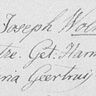 Joseph Wol
tre. Get. Har
na Geertruij